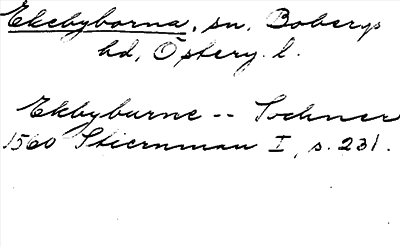 Ekebyborna, sn, Bobergs
hd, Österg. l.
Ekbyburne -- Sochner
1560 Stiernman I, s. 231.